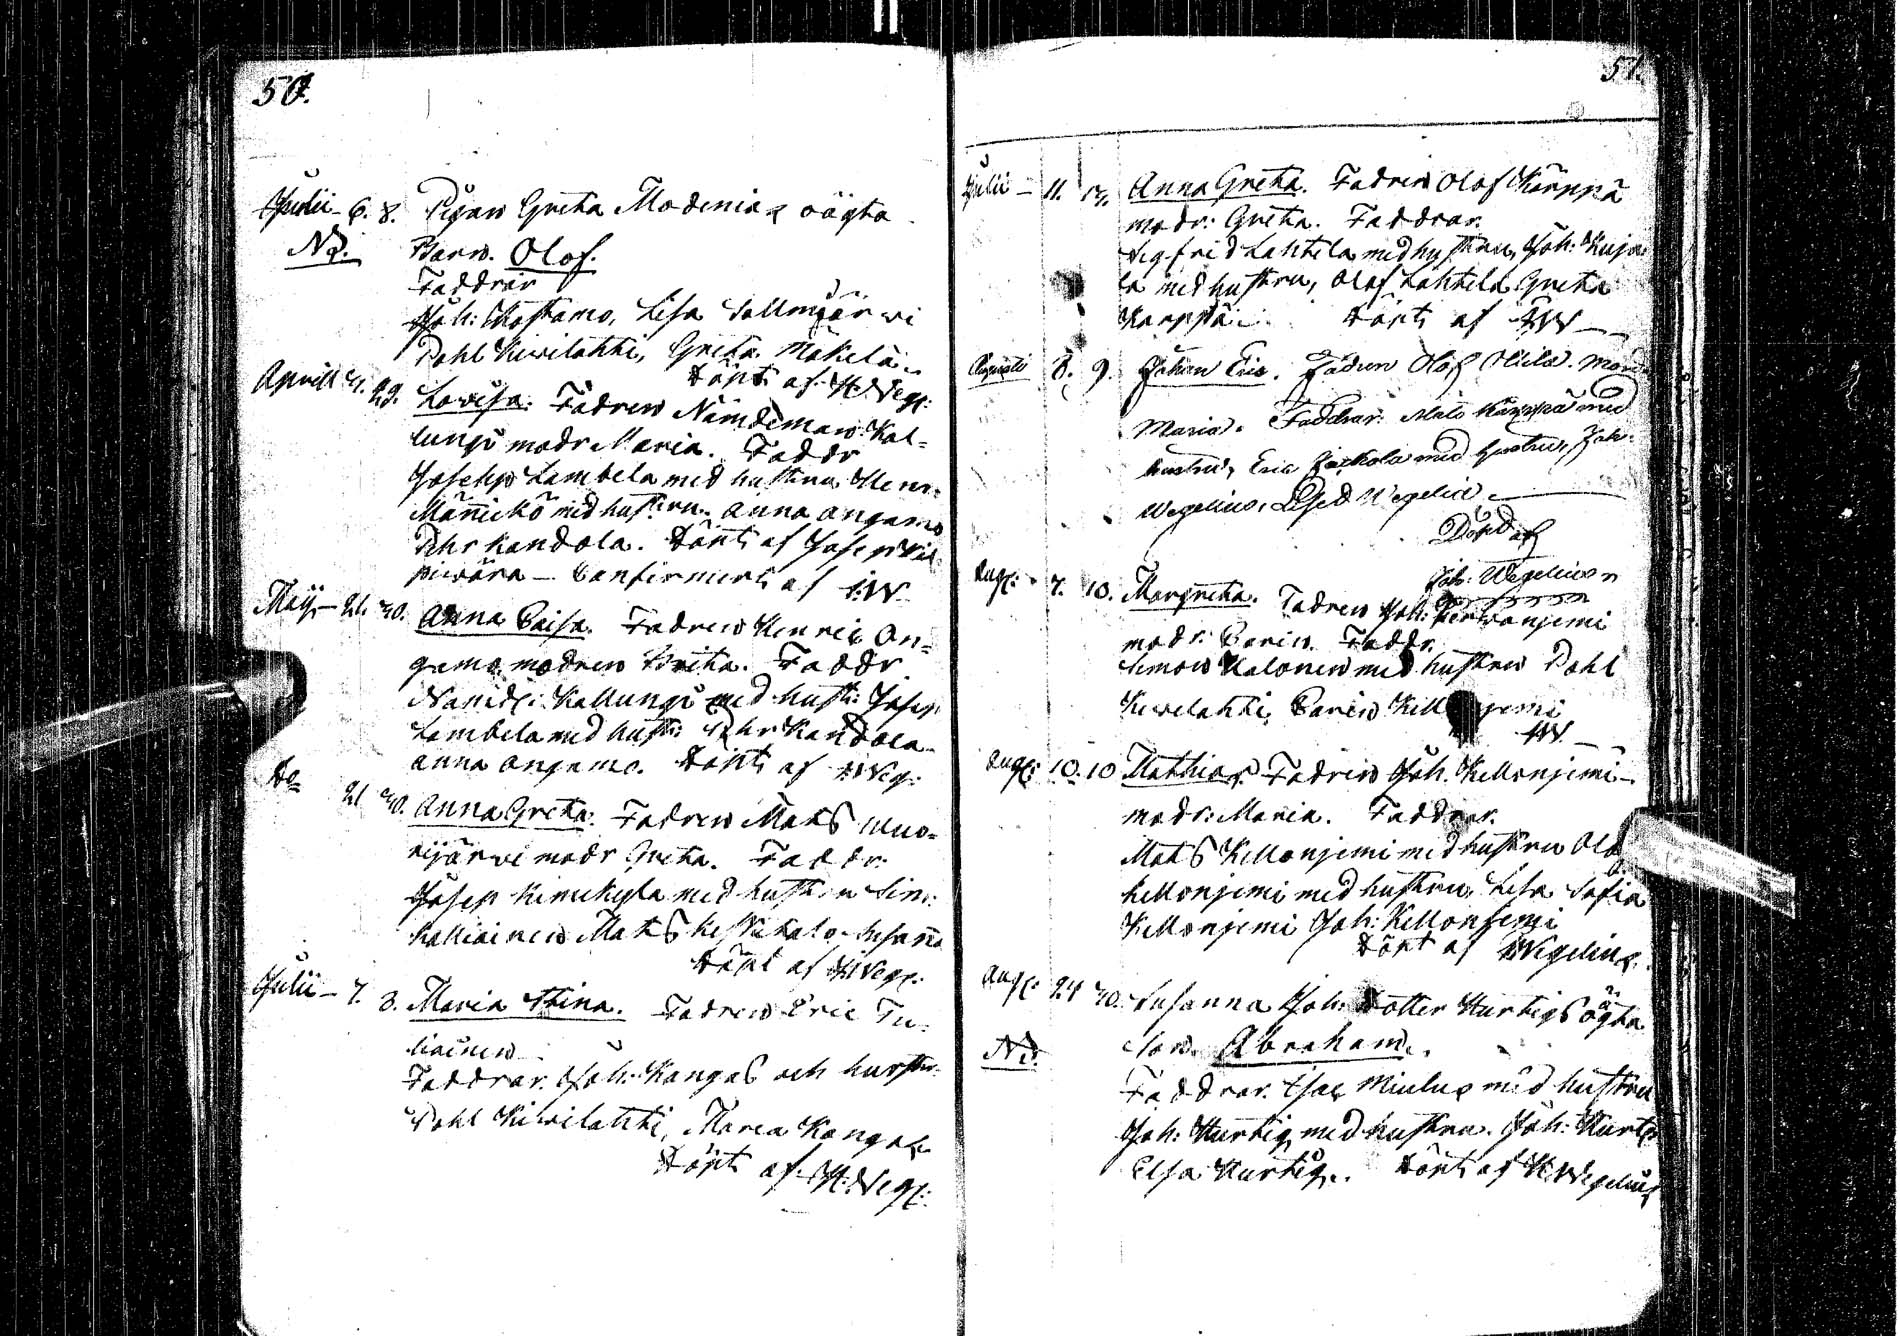 50.
Junii 6. 8. Pigan Greta Modenias oägta
NB. Barn. Olof.
Faddrar
Joh: Kostamo, Lisa Sallmjärwi
Pahl Kiwilahti, Greta Mäkelä.
Döpt af H: Weg:
Aprill 29. Lovisa. Fadren Nämdeman Kal=
lungi modr Maria. Faddr
Joseph Lambela med hustru Henr:
Männickö med hustru. Anna Angamo
Pehr Kandola. Döpt af Josep
piwära — Confirmert af HW
Maij 21. 30. Anna Caisa. Fadren Henric An=
gamo, modren Brita. Faddr
Nämd: Kallungi med hust: Josep
Lambela med hust: Pehr Kandola
Anna Angamo. Döpt af HWeg:
do 21 30. Anna Greta. Fadren Mats Uno=
rijärwi modr Greta. Faddr.
Josep Kimikyla med hustru Sim:
Kalliainen Mats Keskitalo Susanna
Döpt af HWeg:
Julii — 7. 8. Maria Stina. Fadren Eric Tu=
liainen
Faddrar. Joh: Kangas och hustru
Pahl Kiwilahti, Maria Kangas
Döpt af H: Weg:
51.
Julii — 11. Anna Greta. Fadren Olof Kärppä
modr: Greta. Faddrar.
Sigfrid Lahtela med hustru, Joh: Kuja=
la med hustru, Olof Lahtela Greta
Karppä. Döpt af HW
Augusti 8. 9. Johan Eric. Fadren Olof Ollila. Mod:
Maria. Faddrar. Mats Kärppä med
hustru, Eric Jaskola med hustru, Joh:
Wegelius, Lised Wegelia.
Döpt af
Joh: Wegelius
Aug: 7. 10. Margreta. Fadren Joh: Perwanjemi
modr: Carin. Faddr.
Simon Halonen med hustru Pahl
Kiwilahti, Carin Kell jemi
HW
Aug: 10. 10 Mathias. Fadren Joh. Kellonjemi
modr: Maria. Faddrar.
Mats Kellonjemi med hustru Olo
Kellonjemi med hustru, Lisa Sofia
Kellonjemi Joh: Kellonjemi
Döpt af HWegelius.
Aug: 24 30. Susanna Joh: dotter Hurtigs oägta
NB. Son. Abraham.
Faddrar. Isac Miulus med hustru
Joh: Hurtig med hustru. Joh: Hurt:
Elsa Hurtig. Döpt af H:Wegelius